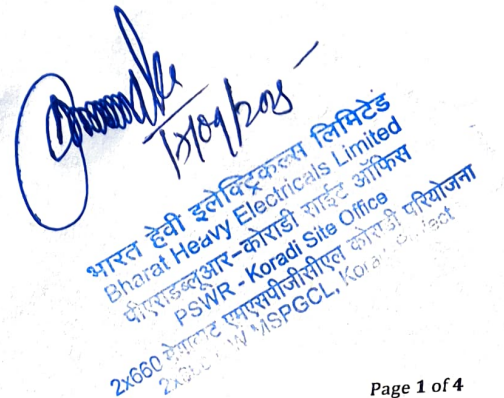 भारत हेवी इलेक्ट्रिकल्स लिमिटेड
Bharat Heavy Electricals Limited
पीएसडब्लूआर-कोराडी साईट ऑफिस
PSWR - Koradi Site Office
2x660 मेगावाट एमएसपीजीसीएल कोराडी परियोजना
MSPGCL,
Page 1 of 4